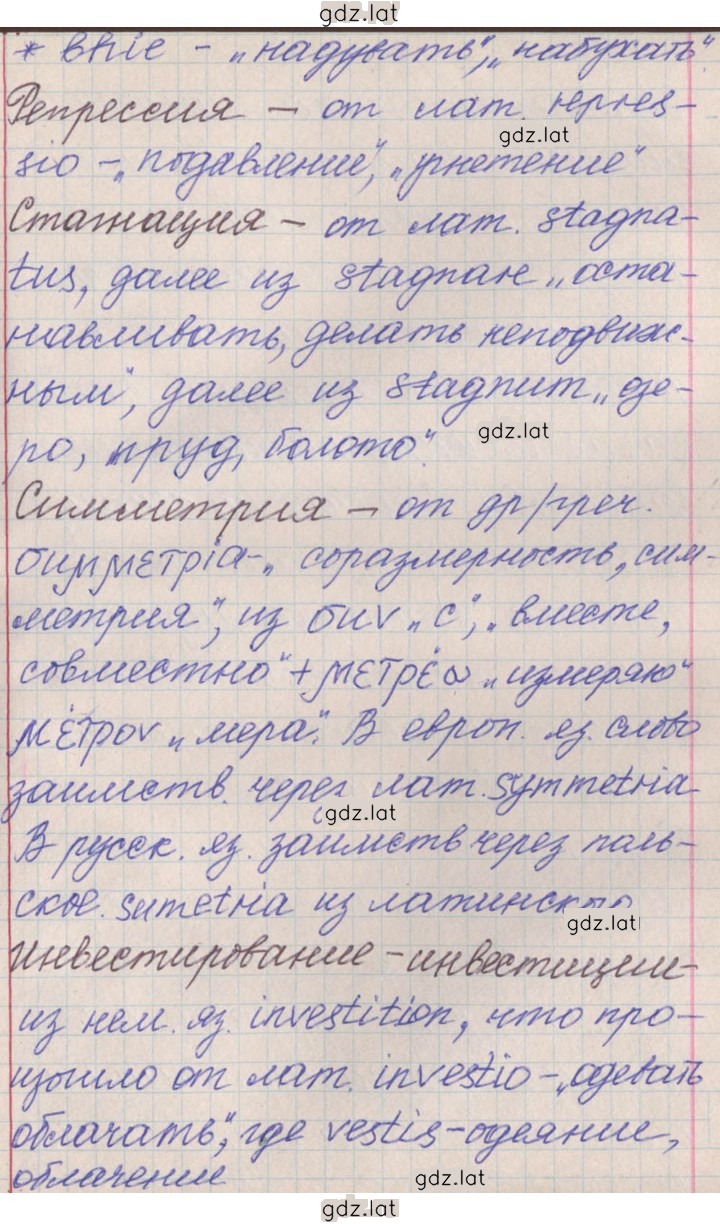 gdz.lat
* bhle - „надувать“, „набухать“
Репрессия – от лат. repres-
gdz.lat
sio – „подавление“, „угнетение“
Стагнация – от лат. stagna-
tus, далее из stagnare „оста-
навливать, делать неподвиж-
ным“, далее из stagnum „озе-
ро, пруд, болото“.
gdz.lat
Симметрия – от др/греч.
συμμετρία - „соразмерность, сим-
метрия“, из συν „с“, „вместе,
совместно“ + μετρέω „измеряю“
μέτρον „мера“. В европ. яз. слово
заимств. через лат. symmetria
gdz.lat
В русск. яз. заимств через поль-
ское. sumetria из латинского
gdz.lat
Инвестирование – инвестиции –
из нем. яз. investition, что про-
изошло от лат. investio – „одевать
облачать“, где vestis – одеяние,
облачение
gdz.lat
gdz.lat